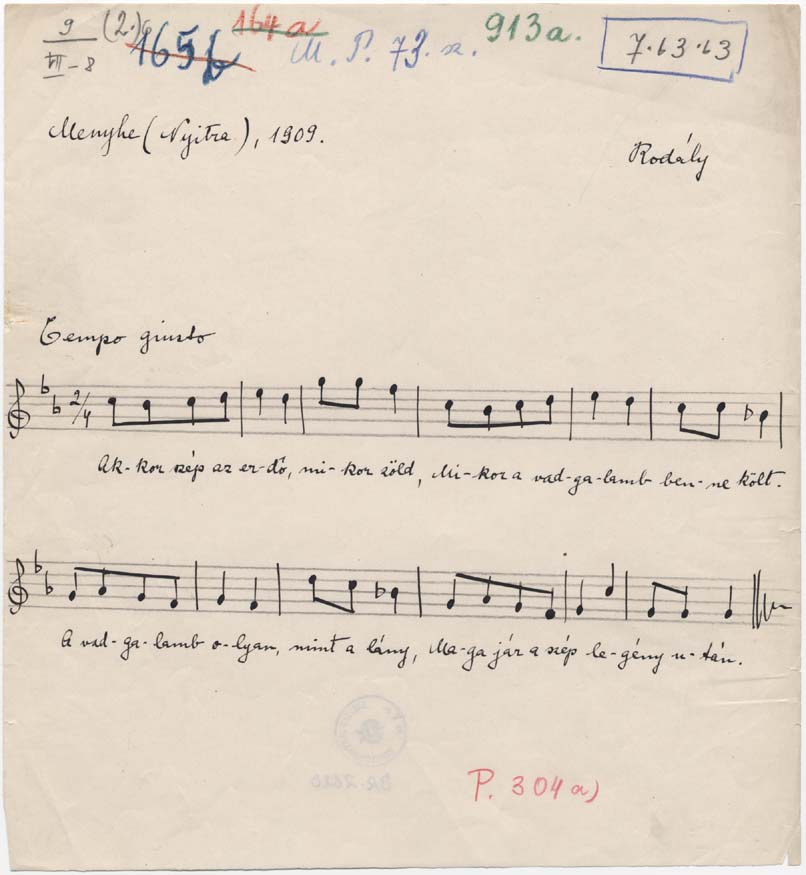 9 (2.)
VII-8
165b 164a M. P. 73. sz. 913a. 7.63.63
Menyhe (Nyitra), 1909.
Kodály
Tempo giusto
2/4
Ak-kor szép az er-dő, mi-kor zöld, Mi-kor a vad-ga-lamb ben-ne költ.
A vad-ga-lamb o-lyan, mint a lány, Ma-ga jár a szép le-gény u-tán.
P. 304a)